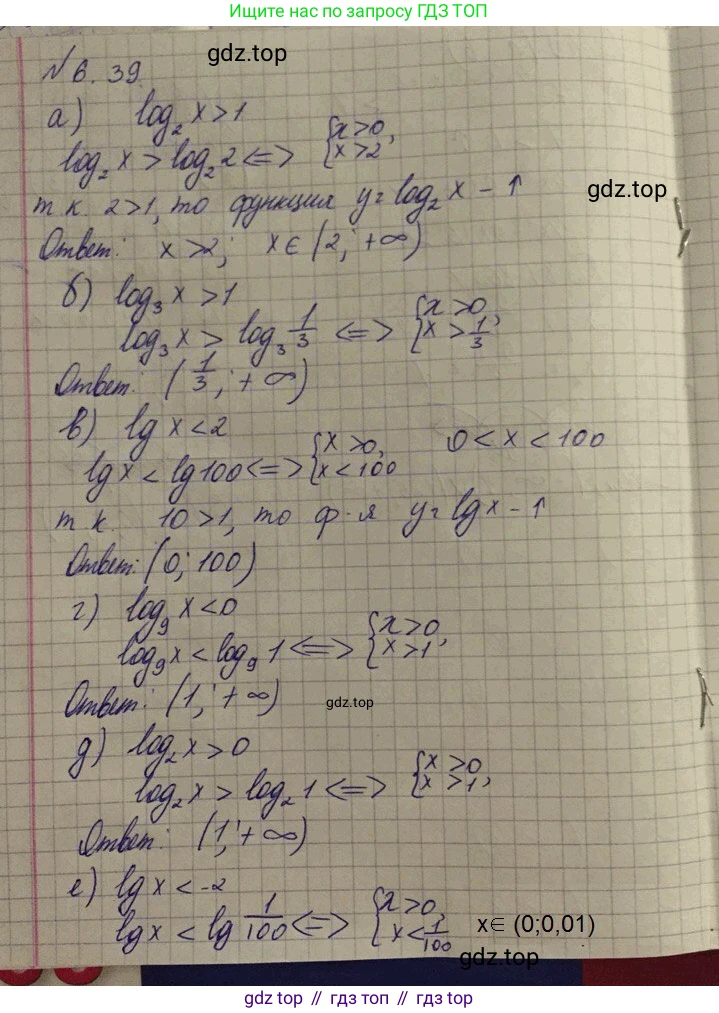 Ищите нас по запросу ГДЗ ТОП
N 6. 39.
gdz.top
а) log₂ x > 1
log₂ x > log₂ 2 <=> {x > 0, x > 2
т к. 2 > 1, то функция y = log₂ x - ↑
gdz.top
Ответ: x > 2; x ∈ (2; +∞)
б) log₃ x > 1
log₃ x > log₃ 1/3 <=> {x > 0, x > 1/3
Ответ: (1/3; +∞)
в) lg x < 2
lg x < lg 100 <=> {x > 0, x < 100 0 < x < 100
т к. 10 > 1, то ф-я y = lg x - ↑
Ответ: (0; 100)
г) log₉ x < 0
log₉ x < log₉ 1 <=> {x > 0, x > 1
Ответ: (1; +∞)
gdz.top
д) log₂ x > 0
log₂ x > log₂ 1 <=> {x > 0 x > 1,
Ответ: (1; +∞)
е) lg x < -2
lg x < lg 1/100 <=> {x > 0, x < 1/100 x∈ (0;0,01)
gdz.top
gdz top // гдз топ // gdz.top